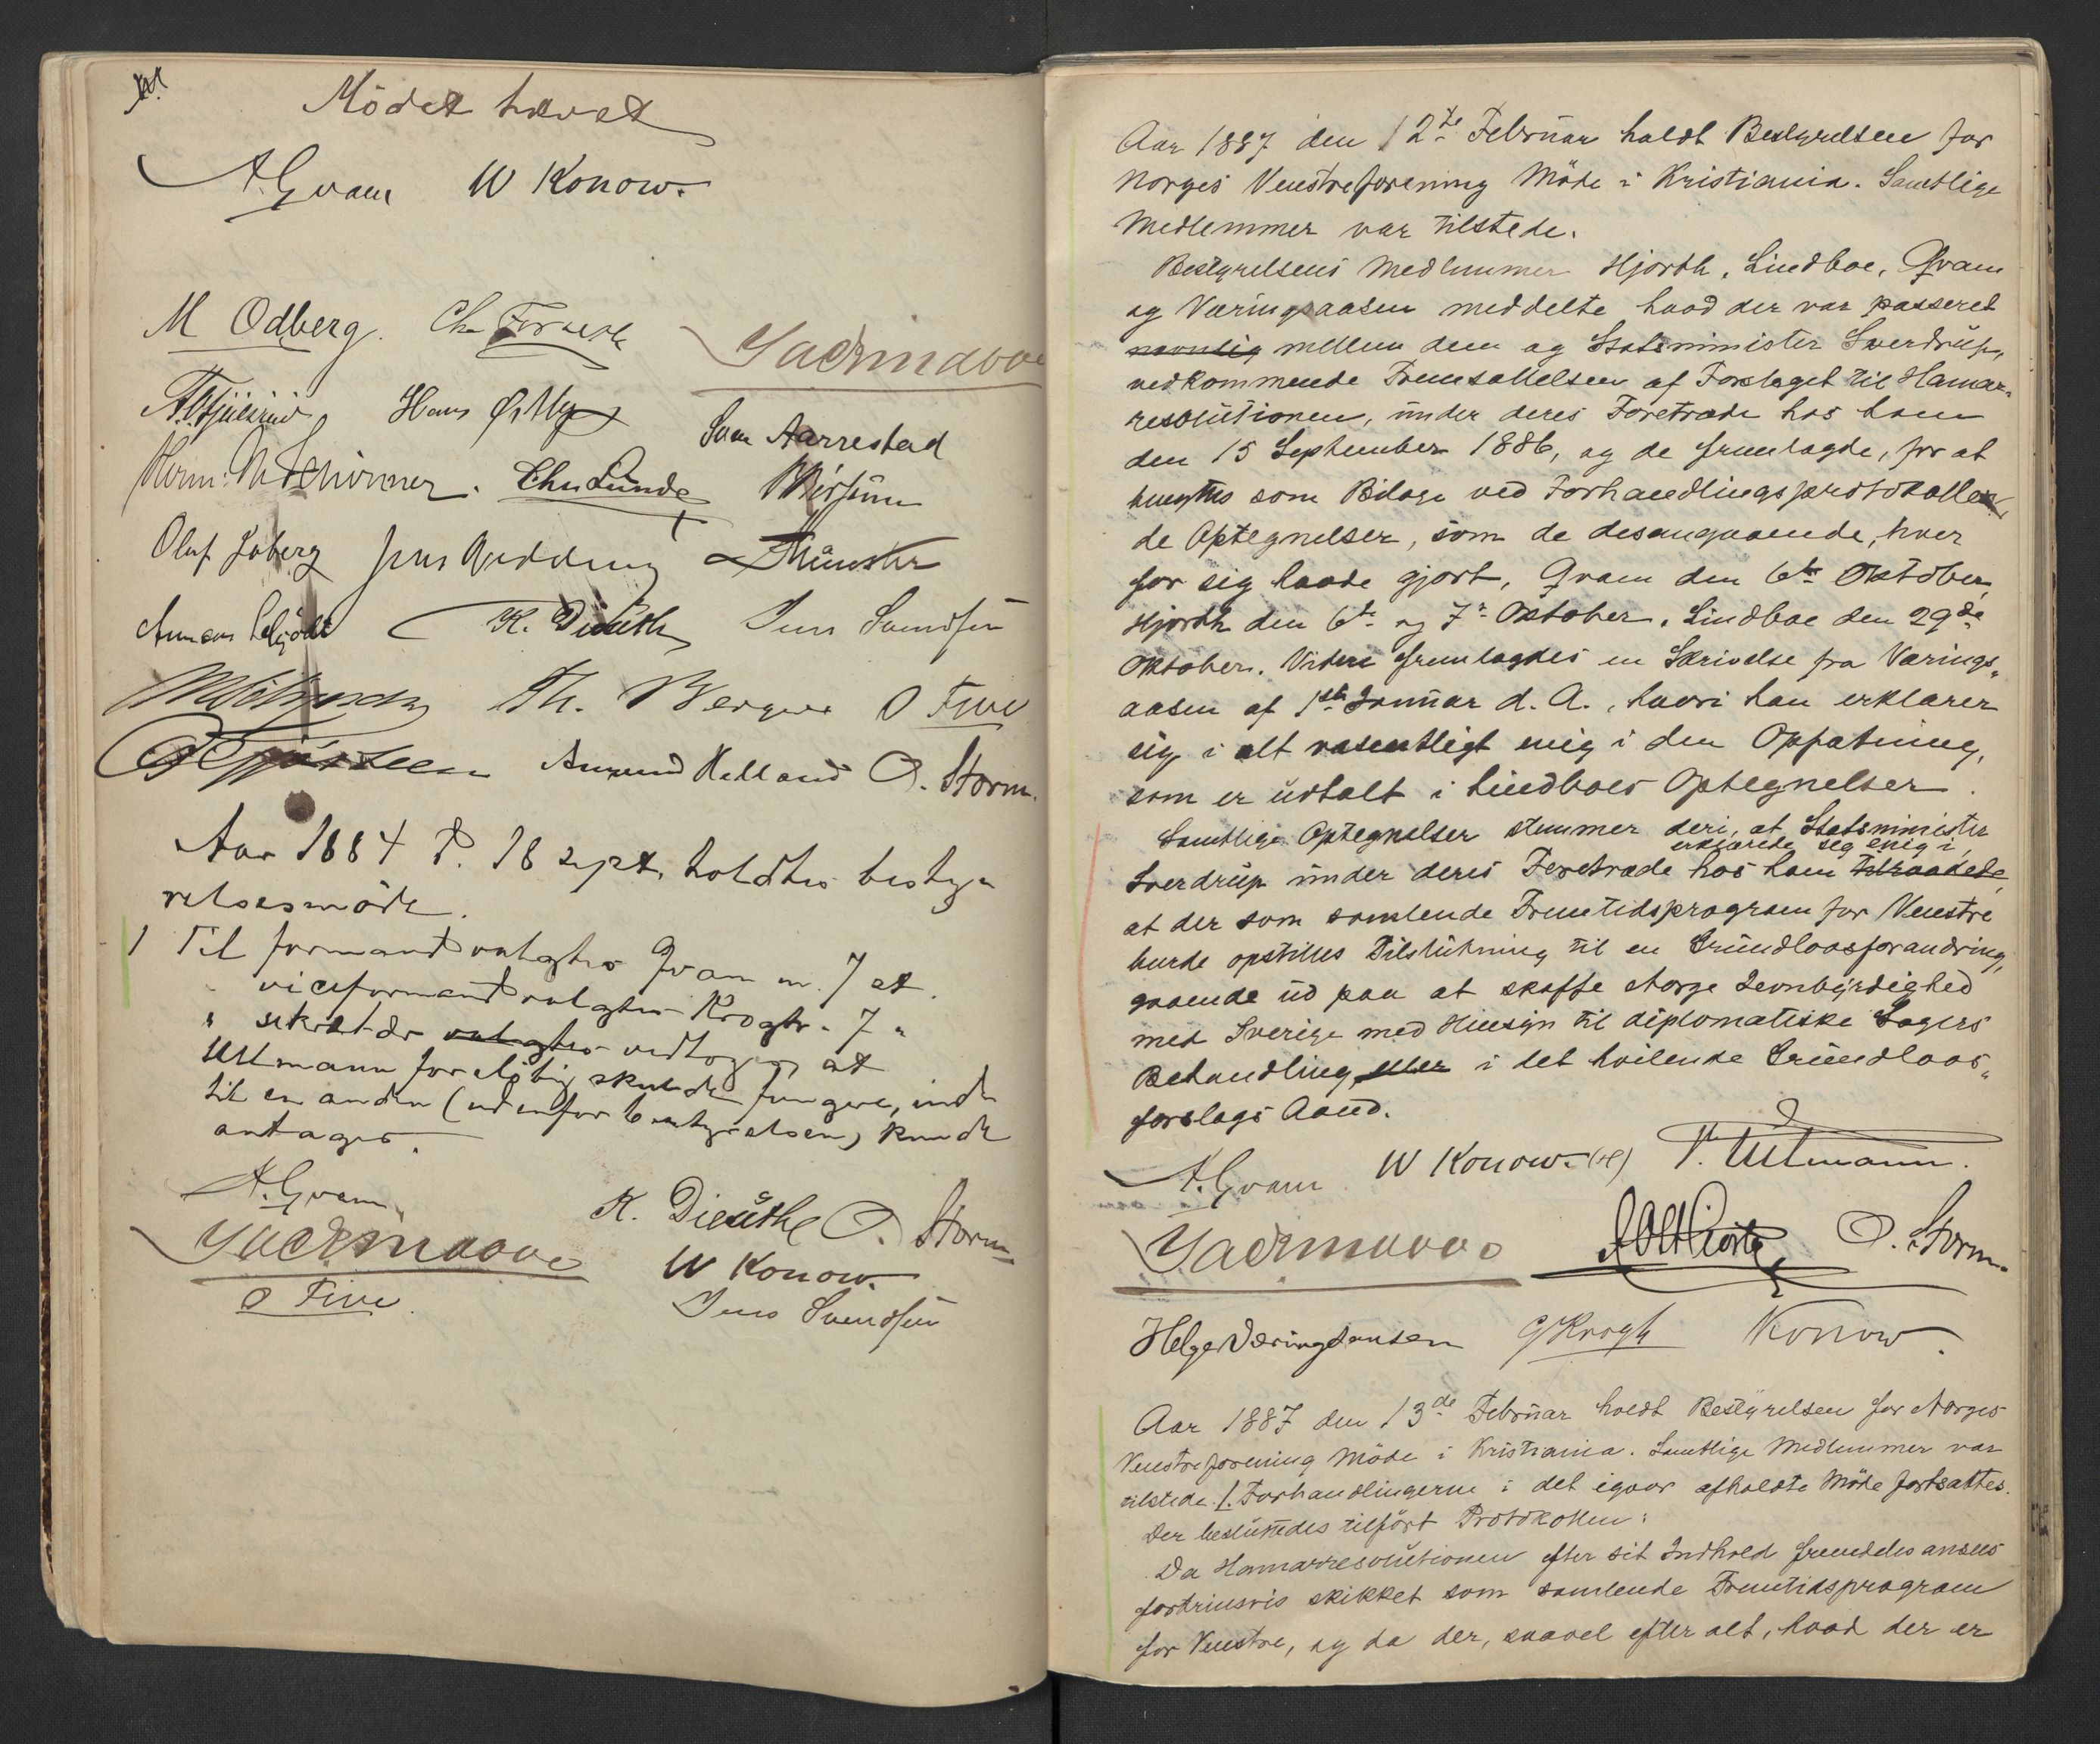 Mödet hævet
A. Qvam W Konow.
M Odberg.
Hans
Sven Aarrestad
Chr Lunde
Olaf
Münster
K. Jens Svendsen
Th. O Five
Amund Helland O. Storm.
Aar 1884 d. 18 sept. holdtes besty-
relsesmöde.
1 Til formand valgtes Qvam m. 7 st.
" viceformand valgtes Krogh - 7 "
" sekretær valgtes vedtoges at
Ullmann foreløbig skulde fungere, ind-
til en anden (udenfor bestyrelsen) kunde
antages.
A. Qvam
K. O. Storm
W Konow.
O Five
Jens Svendsen
Aar 1887 den 12te Februar holdt Bestyrelsen for
Norges Venstreforening Möde i Kristiania. Samtlige
Medlemmer var tilstede.
Bestyrelsens Medlemmer Hjorth, Lindboe, Qvam
og Væringsaasen meddelte hvad der var passeret
navnlig mellem dem og Statsminister Sverdrup,
vedkommende Fremsættelsen af Forslaget til Hamar-
resolutionen, under deres Foretræde hos ham
den 15 September 1886, og de fremlagde, for at
benyttes som Bilage ved Forhandlingsprotokollen,
de Optegnelser, som de desangaaende, hver
for sig havde gjort, Qvam den 6te Oktober,
Hjorth den 6te og 7de Oktober, Lindboe den 29de
Oktober. Videre fremlagdes en Skrivelse fra Værings-
aasen af 1ste Januar d. A., hvori han erklærer
sig i alt væsentligt enig i den Opfatning,
som er udtalt i Lindboes Optegnelser.
Samtlige Optegnelser stemmer deri, at Statsminister
erklærede sig enig i,
Sverdrup under deres Foretræde hos ham tilraadede,
at der som samlende Fremtidsprogram for Venstre
burde opstilles Tilslutning til en Grundlovsforandring,
gaaende ud paa at skaffe Norge Jevnbyrdighed
med Sverige med Hensyn til diplomatiske Sagers
Behandling, eller i det hvilende Grundlovs-
forslags Aand.
A. Qvam W Konow. (H) V. Ullmann.
O. Storm.
Helge Væringsaasen G Krogh Konow.
Aar 1887 den 13de Februar holdt Bestyrelsen for Norges
Venstreforening Möde i Kristiania. Samtlige Medlemmer var
tilstede. 1. Forhandlingerne i det igaar afholdte Möde fortsattes.
Der besluttedes tilfört Protokollen:
Da Hamarresolutionen efter sit Indhold fremdeles ansees
fortrinsvis skikket som samlende Fremtidsprogram
for Venstre, og da der, saavel efter alt, hvad der er